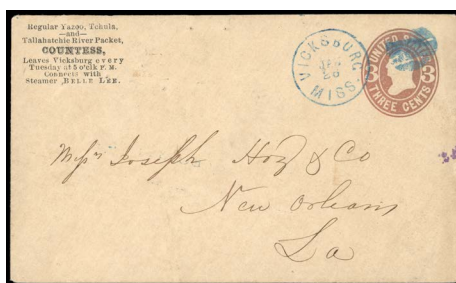 Regular Yazoo, Tchula,
—and—
Tallahatchie River Packet,
COUNTESS,
Leaves Vicksburg every
Tuesday at 5 o'clk P. M.
Connects with
Steamer BELLE LEE.
VICKSBURG
MISS
UNITED
3 3
THREE CENTS
Joseph Hoy & Co
New Orleans
La